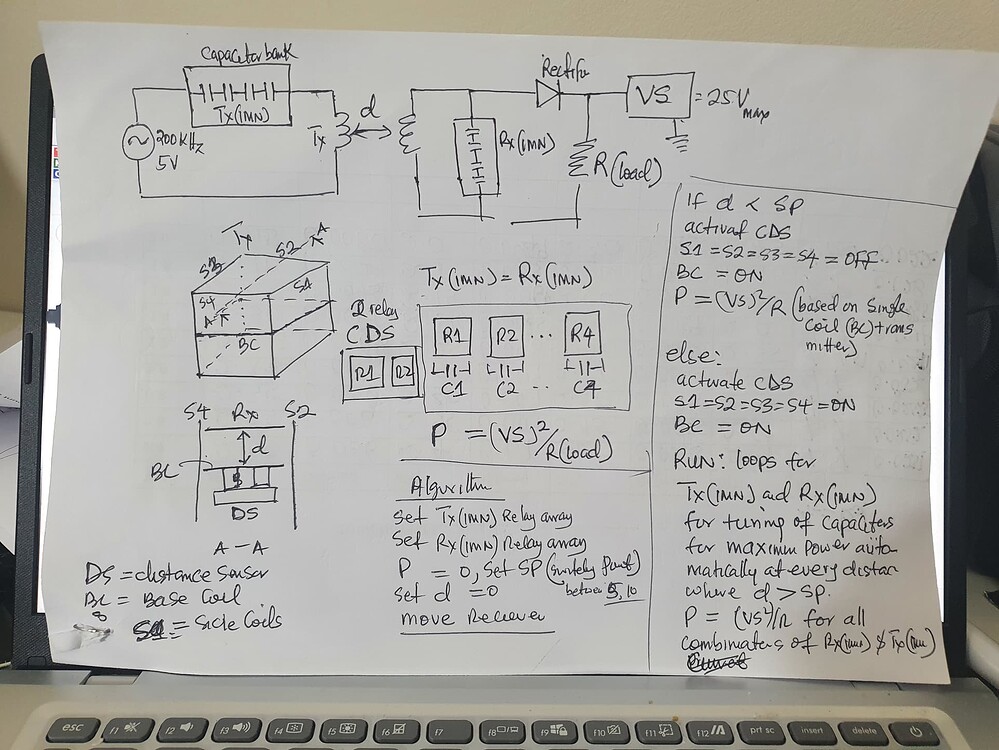 Capacitor bank
Tx(IMN)
200KHz
5V
Tx
d
Rx(IMN)
Rectifir
VS
= 25Vmax
R(load)
Tx
S2
A
S3
S4
S1
A
BC
S4 Rx S2
d
BC
S
DS
A-A
DS = distance Sensor
BC = Base Coil
8
= Side Coils
Tx(IMN) = Rx(IMN)
2 relay
CDS
R1 R2
R1 R2 ... R4
C1 C2 .. C4
P = (VS)²/R(load)
Algorithm
Set Tx(IMN) Relay array
Set Rx(IMN) Relay array
P = 0, Set SP (
between 5, 10
set d = 0
move Reciever
If d < SP
activat CDS
S1 = S2 = S3 = S4 = OFF
BC = ON
P = (VS)²/R (based on single
Coil (BC) trans
mitter)
else:
activate CDS
S1 = S2 = S3 = S4 = ON
BC = ON
RUN: loops for
Tx(IMN) ad Rx(IMN)
for tuning of Capaciters
for maximum Power auto
matically at every distac
where d > SP.
P = (VS²)/R for all
combinaters of Rx(imn) $ Tx(imn)
esc
f1
f2
f3
f4
f5
f6
f7
f8
f9
f10
f11
f12
prt sc
insert
delete